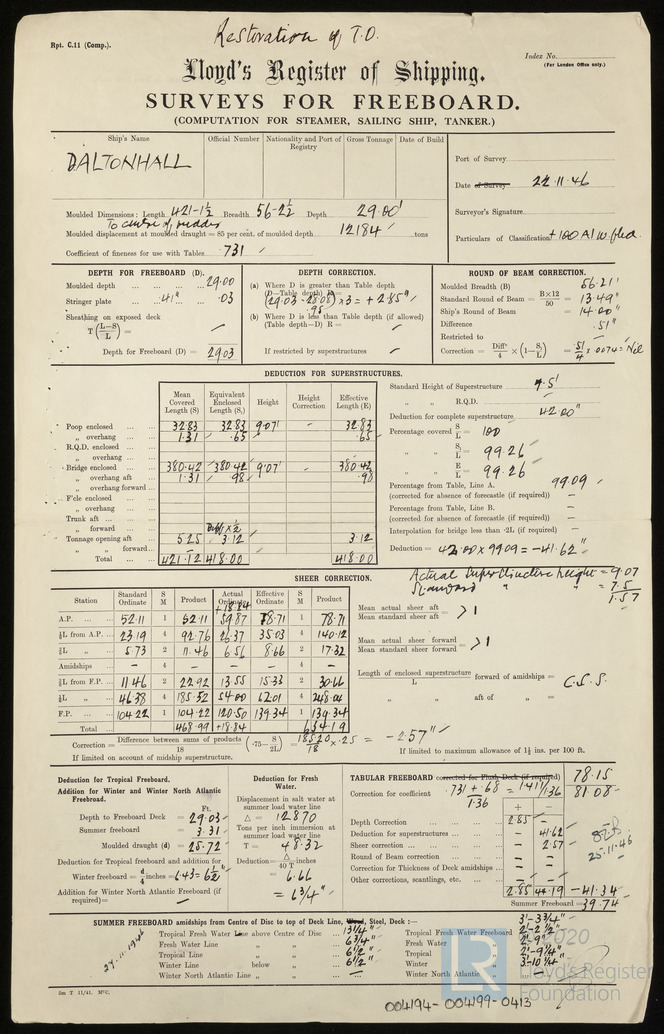 Rpt. C.11 (Comp.).
Restoration of T.O.
Index No.
(For London Office only.)
Lloyd's Register of Shipping.
SURVEYS FOR FREEBOARD.
(COMPUTATION FOR STEAMER, SAILING SHIP, TANKER.)
Ship's Name Official Number Nationality and Port of Registry Gross Tonnage Date of Build
DALTONHALL
Port of Survey
Date of Survey 22.11.46
Surveyor's Signature
Particulars of Classification +100A1 w. fbd.
Moulded Dimensions: Length 421-1½ Breadth 56-2½ Depth 29.00'
To centre of rudder
Moulded displacement at moulded draught = 85 per cent. of moulded depth 12184 tons
Coefficient of fineness for use with Tables .731
DEPTH FOR FREEBOARD (D).
Moulded depth 29.00
Stringer plate .41" .03
Sheathing on exposed deck
T(L-S/L) =
Depth for Freeboard (D) = 29.03
DEPTH CORRECTION.
(a) Where D is greater than Table depth
(D-Table depth) R=
(29.03 - 28.08) x 3 = + 2.85"
.95
(b) Where D is less than Table depth (if allowed)
(Table depth-D) R =
If restricted by superstructures
ROUND OF BEAM CORRECTION.
Moulded Breadth (B) 56.21'
Standard Round of Beam = B×12/50 = 13.49"
Ship's Round of Beam = 14.00"
Difference .51"
Restricted to
Correction = Diffce/4 × (1 - S₁/L) = .51/4 x .0074 = Nil
DEDUCTION FOR SUPERSTRUCTURES.
Mean Covered Length (S) Equivalent Enclosed Length (S₁) Height Height Correction Effective Length (E)
Poop enclosed 32.83 32.83 9.07' - 32.83
„ overhang 1.31 .65 .65
R.Q.D. enclosed
„ overhang
Bridge enclosed 380.42 380.42 9.07' - 380.42
„ overhang aft 1.31 .98 .98
„ overhang forward
F'cle enclosed
„ overhang
Trunk aft
„ forward
Tonnage opening aft 5.25 3.12 3.12
„ „ forward
Total 421.12 418.00 418.00
Standard Height of Superstructure 7.5'
„ „ R.Q.D.
Deduction for complete superstructure 42.00"
Percentage covered S/L = 100
„ „ S₁/L = 99.26
„ „ E/L = 99.26
Percentage from Table, Line A. 99.09
(corrected for absence of forecastle (if required))
Percentage from Table, Line B. -
(corrected for absence of forecastle (if required)) -
Interpolation for bridge less than ·2L (if required) -
Deduction = 42.00 x 99.09 = -41.62"
Actual Superstructure height = 9.07
Standard „ „ = 7.5
1.57
SHEER CORRECTION.
Station Standard Ordinate S M Product Actual Ordinate Effective Ordinate S M Product
+18.84
A.P. 52.11 1 52.11 59.87 78.71 1 78.71
⅙L from A.P. 23.19 4 92.76 26.37 35.03 4 140.12
⅓L „ 5.73 2 11.46 6.56 8.66 2 17.32
Amidships - 4 - - - 4 -
⅓L from F.P. 11.46 2 22.92 13.55 15.33 2 30.66
⅙L „ 46.38 4 185.52 54.00 62.01 4 248.04
F.P. 104.22 1 104.22 120.50 139.34 1 139.34
Total 468.99 +18.84 654.19
Mean actual sheer aft
Mean standard sheer aft = >1
Mean actual sheer forward
Mean standard sheer forward = >1
Length of enclosed superstructure/L forward of amidships = C.S.S.
„ „ aft of „ =
Correction = Difference between sums of products/18 (·75 - S/2L) = 185.20/18 x .25 = -2.57"
If limited on account of midship superstructure.
If limited to maximum allowance of 1½ ins. per 100 ft.
Deduction for Tropical Freeboard.
Addition for Winter and Winter North Atlantic Freeboard.
Ft.
Depth to Freeboard Deck = 29.03
Summer freeboard = 3.31
Moulded draught (d) = 25.72
Deduction for Tropical freeboard and addition for
Winter freeboard = d/4 inches = 6.43 = 6½"
Addition for Winter North Atlantic Freeboard (if required) =
Deduction for Fresh Water.
Displacement in salt water at summer load water line
Δ = 12870
Tons per inch immersion at summer load water line
T = 48.32
Deduction = Δ/40 T inches
= 6.66
= 6¾"
TABULAR FREEBOARD corrected for Flush Deck (if required) 78.15
Correction for coefficient .731 + .68/1.36 = 1.411/1.36 81.08
+ -
Depth Correction 2.85 -
Deduction for superstructures - 41.62
Sheer correction - 2.57
Round of Beam correction - -
Correction for Thickness of Deck amidships - -
Other corrections, scantlings, etc. - -
2.85 44.19 -41.34
Summer Freeboard = 39.74
25.11.46
SUMMER FREEBOARD amidships from Centre of Disc to top of Deck Line, Wood, Steel, Deck:— 3'-3¾"
Tropical Fresh Water Line above Centre of Disc 13¼" Tropical Fresh Water Freeboard 2'-2½"
Fresh Water Line „ „ 6¾" Fresh Water „ 2'-9"
Tropical Line „ „ 6½" Tropical „ 2'-9¼"
Winter Line below „ 6½" Winter „ 3'-10¼"
Winter North Atlantic Line „ „ Winter North Atlantic „
27.11.1946
5m T 11/41. MVC.
LR
2020
Lloyd's Register
Foundation
004194-004199-0413